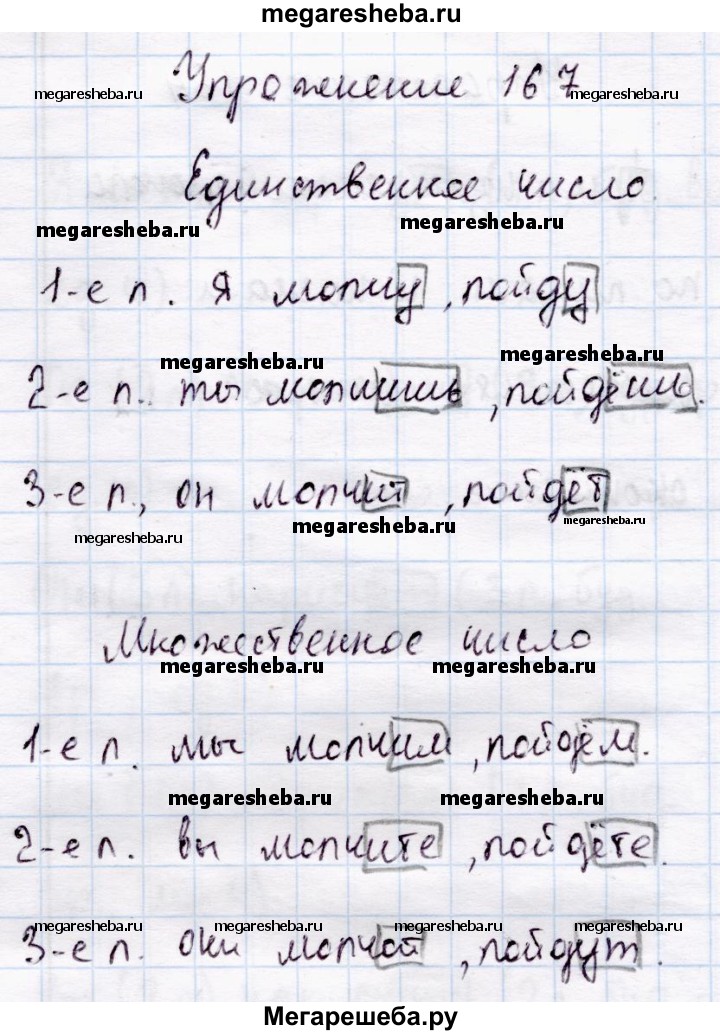 megaresheba.ru
Упражнение 167
megaresheba.ru megaresheba.ru
Единственное число.
megaresheba.ru megaresheba.ru
1-е л. я молчу, пойду
megaresheba.ru megaresheba.ru
2-е л. ты молчишь, пойдёшь.
3-е л., он молчит, пойдёт
megaresheba.ru megaresheba.ru megaresheba.ru
Множественное число
megaresheba.ru megaresheba.ru
1-е л. мы молчим, пойдём.
megaresheba.ru megaresheba.ru
2-е л. вы молчите, пойдёте.
megaresheba.ru megaresheba.ru megaresheba.ru megaresheba.ru
3-е л. они молчат, пойдут.
Мегарешеба.ру